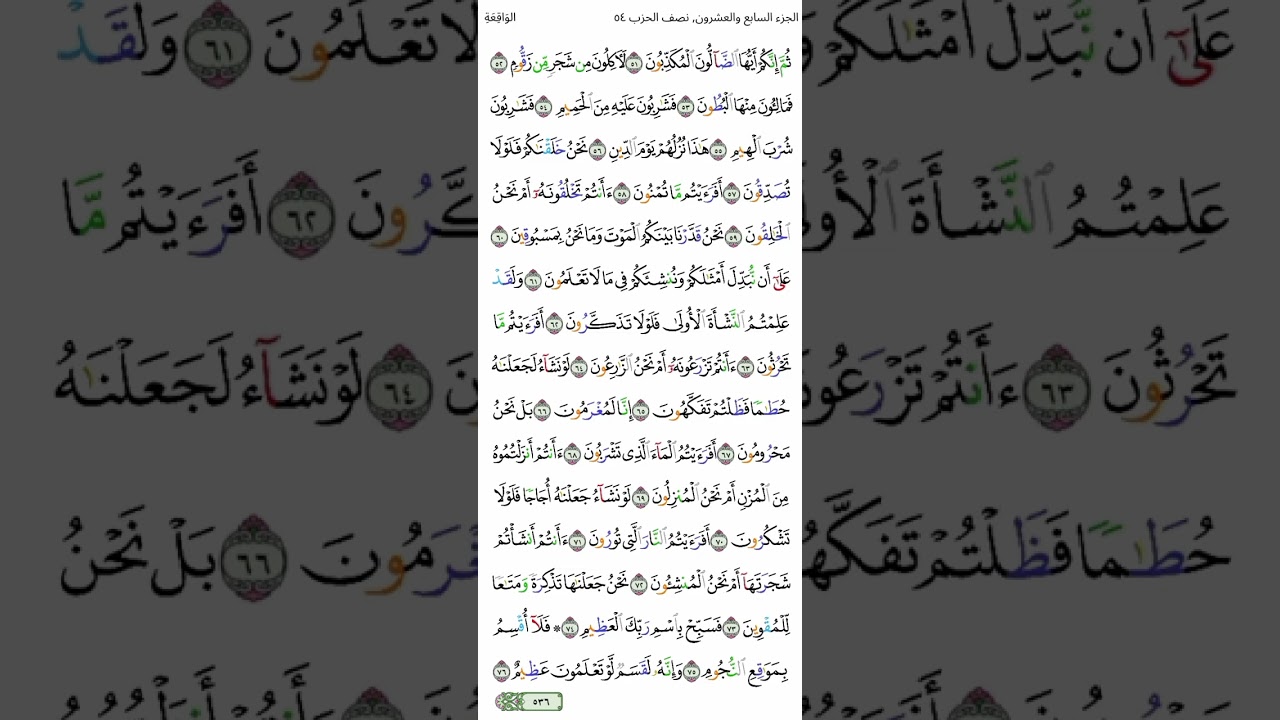 الجزء السابع والعشرون, نصف الحزب ٥٤ الوَاقِعَةِ
ثُمَّ إِنَّكُمْ أَيُّهَا ٱلضَّآلُّونَ ٱلْمُكَذِّبُونَ ٥١ لَـَٔاكِلُونَ مِن شَجَرٍ مِّن زَقُّومٍ ٥٢
فَمَالِـُٔونَ مِنْهَا ٱلْبُطُونَ ٥٣ فَشَـٰرِبُونَ عَلَيْهِ مِنَ ٱلْحَمِيمِ ٥٤ فَشَـٰرِبُونَ
شُرْبَ ٱلْهِيمِ ٥٥ هَـٰذَا نُزُلُهُمْ يَوْمَ ٱلدِّينِ ٥٦ نَحْنُ خَلَقْنَـٰكُمْ فَلَوْلَا
تُصَدِّقُونَ ٥٧ أَفَرَءَيْتُم مَّا تُمْنُونَ ٥٨ ءَأَنتُمْ تَخْلُقُونَهُۥٓ أَمْ نَحْنُ
ٱلْخَـٰلِقُونَ ٥٩ نَحْنُ قَدَّرْنَا بَيْنَكُمُ ٱلْمَوْتَ وَمَا نَحْنُ بِمَسْبُوقِينَ ٦٠
عَلَىٰٓ أَن نُّبَدِّلَ أَمْثَـٰلَكُمْ وَنُنشِئَكُمْ فِى مَا لَا تَعْلَمُونَ ٦١ وَلَقَدْ
عَلِمْتُمُ ٱلنَّشْأَةَ ٱلْأُولَىٰ فَلَوْلَا تَذَكَّرُونَ ٦٢ أَفَرَءَيْتُم مَّا
تَحْرُثُونَ ٦٣ ءَأَنتُمْ تَزْرَعُونَهُۥٓ أَمْ نَحْنُ ٱلزَّٰرِعُونَ ٦٤ لَوْ نَشَآءُ لَجَعَلْنَـٰهُ
حُطَـٰمًا فَظَلْتُمْ تَفَكَّهُونَ ٦٥ إِنَّا لَمُغْرَمُونَ ٦٦ بَلْ نَحْنُ
مَحْرُومُونَ ٦٧ أَفَرَءَيْتُمُ ٱلْمَآءَ ٱلَّذِى تَشْرَبُونَ ٦٨ ءَأَنتُمْ أَنزَلْتُمُوهُ
مِنَ ٱلْمُزْنِ أَمْ نَحْنُ ٱلْمُنزِلُونَ ٦٩ لَوْ نَشَآءُ جَعَلْنَـٰهُ أُجَاجًا فَلَوْلَا
تَشْكُرُونَ ٧٠ أَفَرَءَيْتُمُ ٱلنَّارَ ٱلَّتِى تُورُونَ ٧١ ءَأَنتُمْ أَنشَأْتُمْ
شَجَرَتَهَآ أَمْ نَحْنُ ٱلْمُنشِـُٔونَ ٧٢ نَحْنُ جَعَلْنَـٰهَا تَذْكِرَةً وَمَتَـٰعًا
لِّلْمُقْوِينَ ٧٣ فَسَبِّحْ بِٱسْمِ رَبِّكَ ٱلْعَظِيمِ ٧٤ ۞ فَلَآ أُقْسِمُ
بِمَوَٰقِعِ ٱلنُّجُومِ ٧٥ وَإِنَّهُۥ لَقَسَمٌ لَّوْ تَعْلَمُونَ عَظِيمٌ ٧٦
٥٣٦